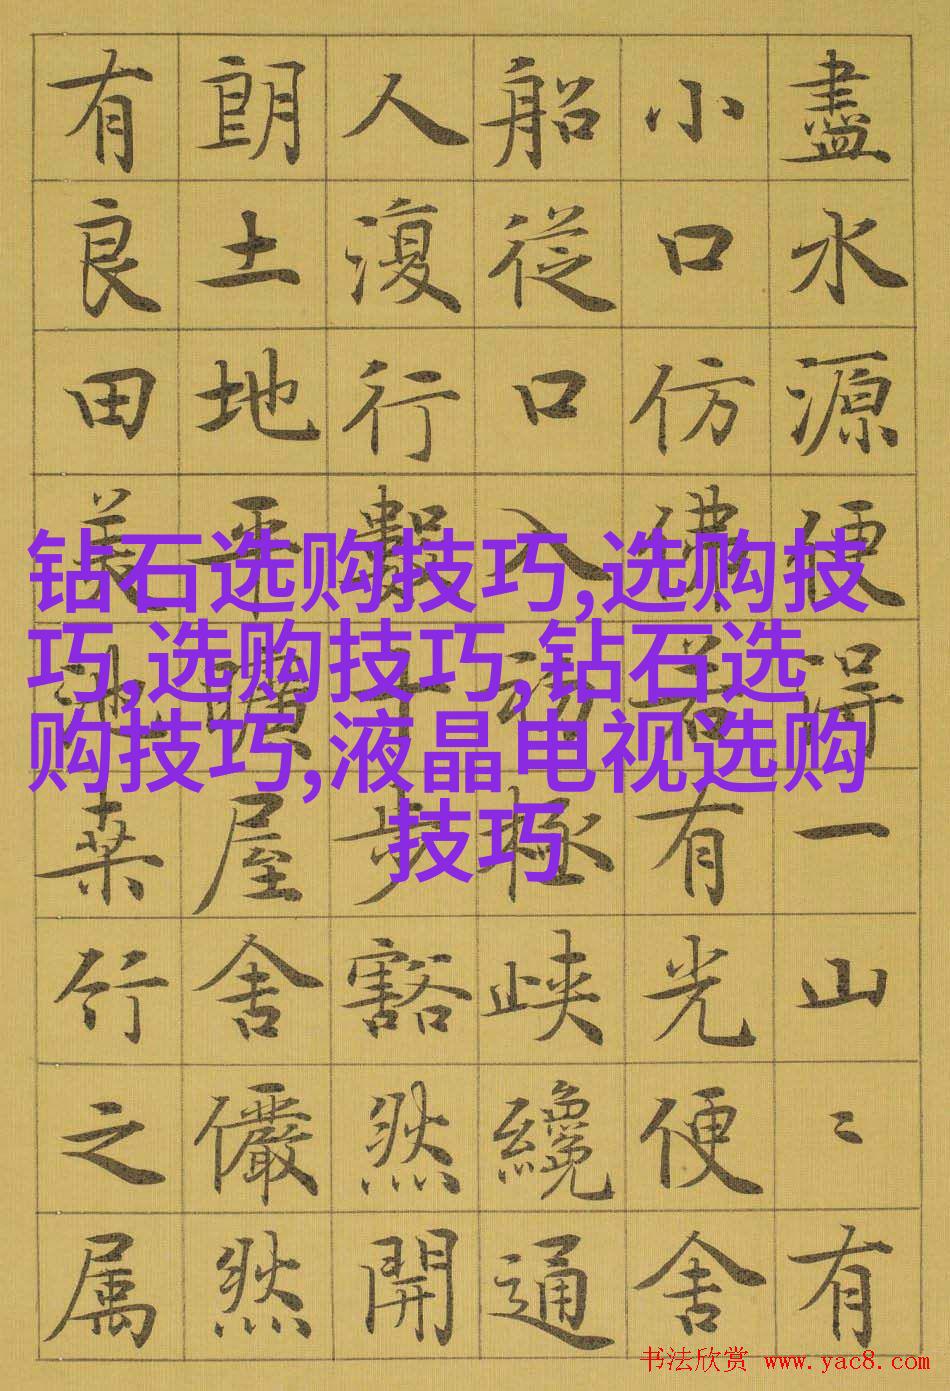 盡水源便得一山〻有
小口仿佛若有光便舍
船從口入初極峽纔通
人復行數十步豁然開
朗土地平曠屋舍儼然
有良田美池桑竹之属
钻石选购技巧,选购技
巧,选购技巧,钻石选
购技巧,液晶电视选购
技巧
书法欣赏 www.yac8.com